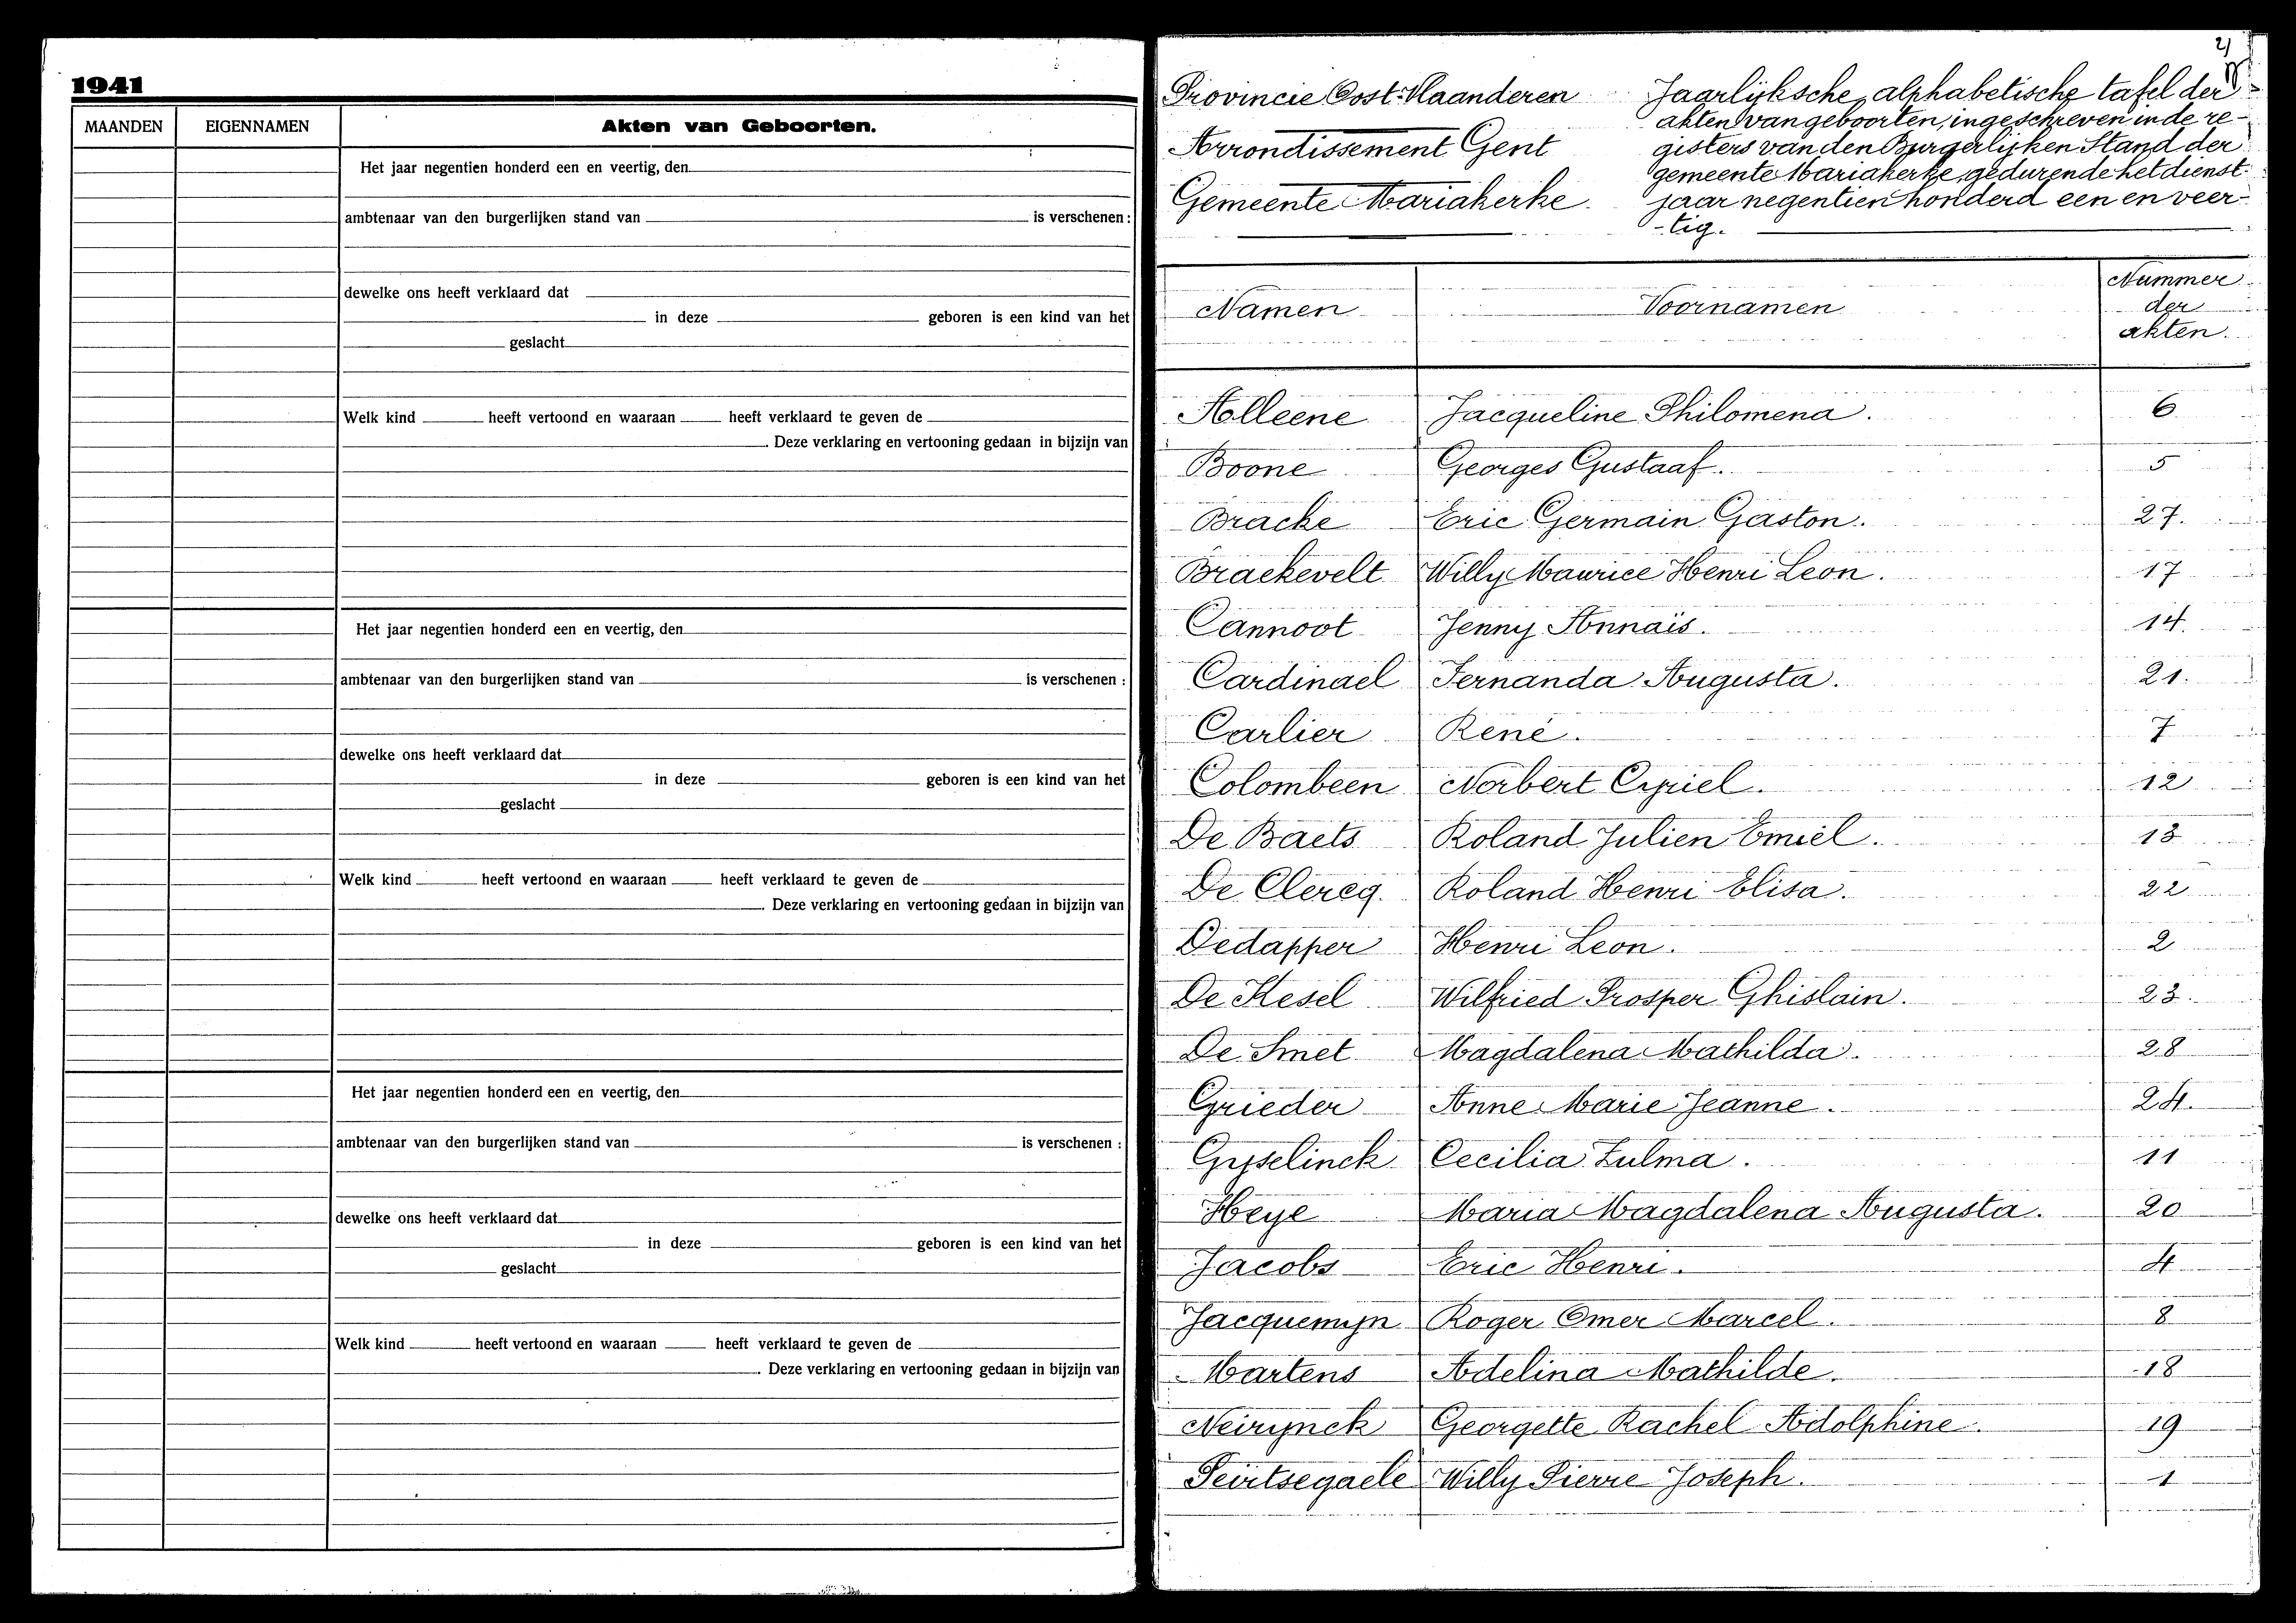 1941
MAANDEN EIGENNAMEN Akten van Geboorten.
Het jaar negentien honderd een en veertig, den
ambtenaar van den burgerlijken stand van is verschenen :
dewelke ons heeft verklaard dat
in deze geboren is een kind van het
geslacht
Welk kind heeft vertoond en waaraan heeft verklaard te geven de
Deze verklaring en vertooning gedaan in bijzijn van
Het jaar negentien honderd een en veertig, den
ambtenaar van den burgerlijken stand van is verschenen :
dewelke ons heeft verklaard dat
in deze geboren is een kind van het
geslacht
Welk kind heeft vertoond en waaraan heeft verklaard te geven de
Deze verklaring en vertooning gedaan in bijzijn van
Het jaar negentien honderd een en veertig, den
ambtenaar van den burgerlijken stand van is verschenen :
dewelke ons heeft verklaard dat
in deze geboren is een kind van het
geslacht
Welk kind heeft vertoond en waaraan heeft verklaard te geven de
Deze verklaring en vertooning gedaan in bijzijn van
Provincie Oost-Vlaanderen
Arrondissement Gent
Gemeente Mariakerke
Jaarlijksche alphabetische tafel der
akten van geboorten, ingeschreven in de re-
gisters van den Burgerlijken Stand der
gemeente Mariakerke gedurende het dienst-
jaar negentien honderd een en veer-
-tig.
Namen Voornamen Nummer
der
akten.
Alleene Jacqueline Philomena. 6
Boone Georges Gustaaf. 5
Bracke Eric Germain Gaston. 27.
Braekevelt Willy Maurice Henri Leon. 17
Cannoot Jenny Annaïs. 14.
Cardinael Fernanda Augusta. 21.
Carlier René. 7
Colombeen Norbert Cyriel. 12
De Baets Roland Julien Emiel. 13
De Clercq. Roland Henri Elisa. 22
Dedapper Henri Leon. 2
De Kesel Wilfried Prosper Ghislain. 23.
De Smet Magdalena Mathilda. 28
Grieder Anne Marie Jeanne. 24.
Gyselinck Cecilia Zulma. 11
Heye Maria Magdalena Augusta. 20
Jacobs Eric Henri. 4
Jacquemijn Roger Omer Marcel. 8
Martens Adelina Mathilde. 18
Neirynck Georgette Rachel Adolphine. 19
Peirtsegaele Willy Pierre Joseph. 1